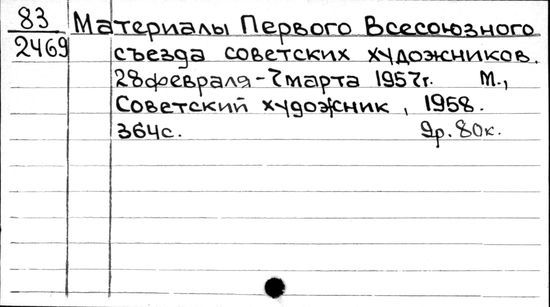 83 Материалы Первого Всесоюзного
2469 съезда советских художников.
28 февраля-7 марта 1957г. М.,
Советский художник, 1958.
364с. 9р.80к.